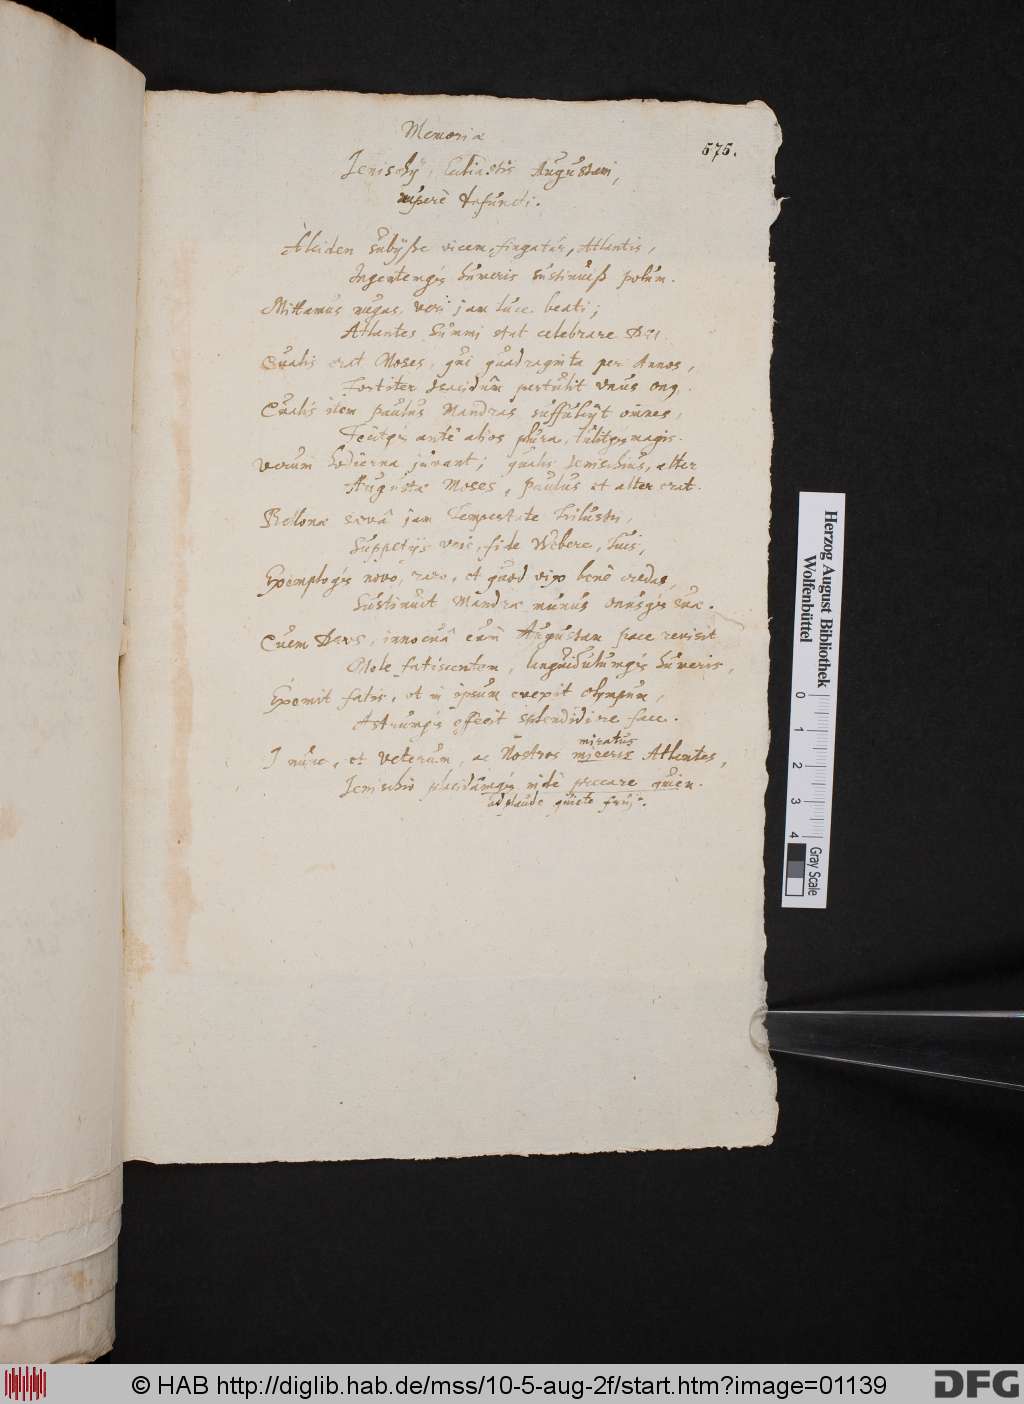 Memoriæ
575.
Jenischij, Ecclesiastis Augustani,
nuperè defuncti.
Alciden subÿsse vicem, fingatur, Atlantis,
Ingentemqis humeris sustinuisse polum.
Mittamus nugas, veri jam luce beati;
Atlantes summi stat celebrare Dei
Qualis erat Moses, qui quadraginta per Annos,
Fortiter Isacidûm pertulit unus onq.
Qualis item Paulus Mandras suffulsÿt omnes,
antè alios plura, tulitqis magis.
Verum hodierna juvant; qualis Jenischius, alter
Augustæ Moses, Paulus et alter erat.
Bellonæ sævâ jam Tempestate Trilustri,
Suppetijs verè, fide Webere, Tuis,
Exemploqis novo, raro, et quod vix benè credas,
Sustinuit Mandræ munus onusqis suæ.
Quem Deus, innocuâ cum Augustam pace revisit
Mole fatiscentem, languidulumqis humeris,
Exemit fatis, et in ipsum evexit Olympum,
Astrumqis effecit splendidiore face.
I nunc, et veterum, ac Nostros miseris Atlantes,
miratus
Jenischio placidamqis indè precare quiem.
adplaude quiete frui.
Herzog August Bibliothek
Wolfenbüttel
0 1 2 3 4
Gray Scale
© HAB http://diglib.hab.de/mss/10-5-aug-2f/start.htm?image=01139
DFG